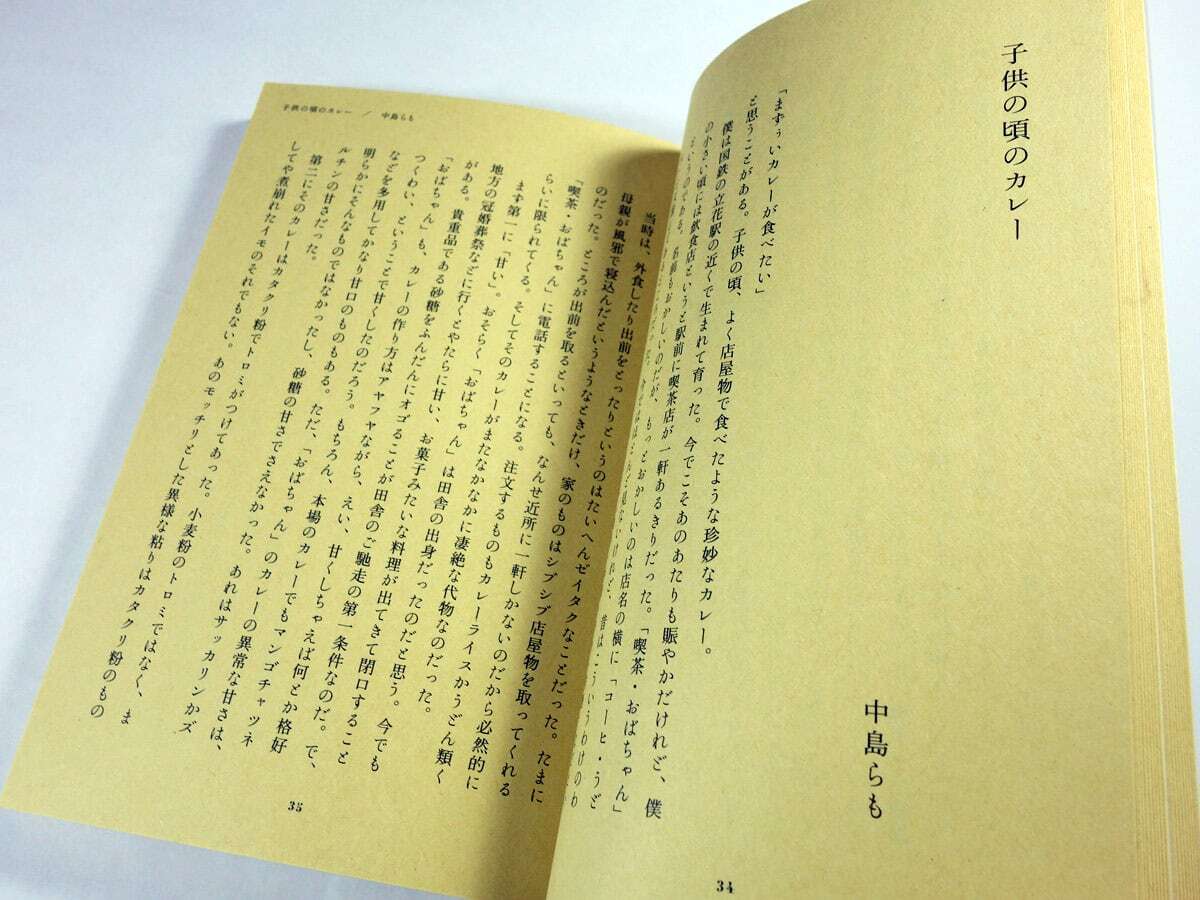 子供の頃のカレー
中島らも
「まずぅいカレーが食べたい」
と思うことがある。子供の頃、よく店屋物で食べたような珍妙なカレー。
僕は国鉄の立花駅の近くで生まれて育った。今でこそあのあたりも賑やかだけれど、僕
の小さい頃には飲食店というと駅前に喫茶店が一軒あるきりだった。「喫茶・おばちゃん」
というのである。名前もおかしいのだが、もっとおかしいのは店名の横に「コーヒ・うど
昔はこういうわけのわ
34
子供の頃のカレー / 中島らも
当時は、外食したり出前をとったりというのはたいへんゼイタクなことだった。たまに
母親が風邪で寝込んだというようなときだけ、家のものはシブシブ店屋物を取ってくれる
のだった。ところが出前を取るといっても、なんせ近所に一軒しかないのだから必然的に
「喫茶・おばちゃん」に電話することになる。注文するものもカレーライスかうどん類く
らいに限られてくる。そしてそのカレーがまたなかなかに凄絶な代物なのだった。
まず第一に「甘い」。おそらく「おばちゃん」は田舎の出身だったのだと思う。今でも
地方の冠婚葬祭などに行くとやたらに甘い、お菓子みたいな料理が出てきて閉口すること
がある。貴重品である砂糖をふんだんにオゴることが田舎のご馳走の第一条件なのだ。で、
「おばちゃん」も、カレーの作り方はアヤフヤながら、えい、甘くしちゃえば何とか格好
つくわい、ということで甘くしたのだろう。もちろん、本場のカレーでもマンゴチャツネ
などを多用してかなり甘口のものもある。ただ、「おばちゃん」のカレーの異常な甘さは、
明らかにそんなものではなかったし、砂糖の甘さでさえなかった。あれはサッカリンかズ
ルチンの甘さだった。
第二にそのカレーはカタクリ粉でトロミがつけてあった。小麦粉のトロミではなく、ま
してや煮崩れたイモのそれでもない。あのモッチリとした異様な粘りはカタクリ粉のもの
35